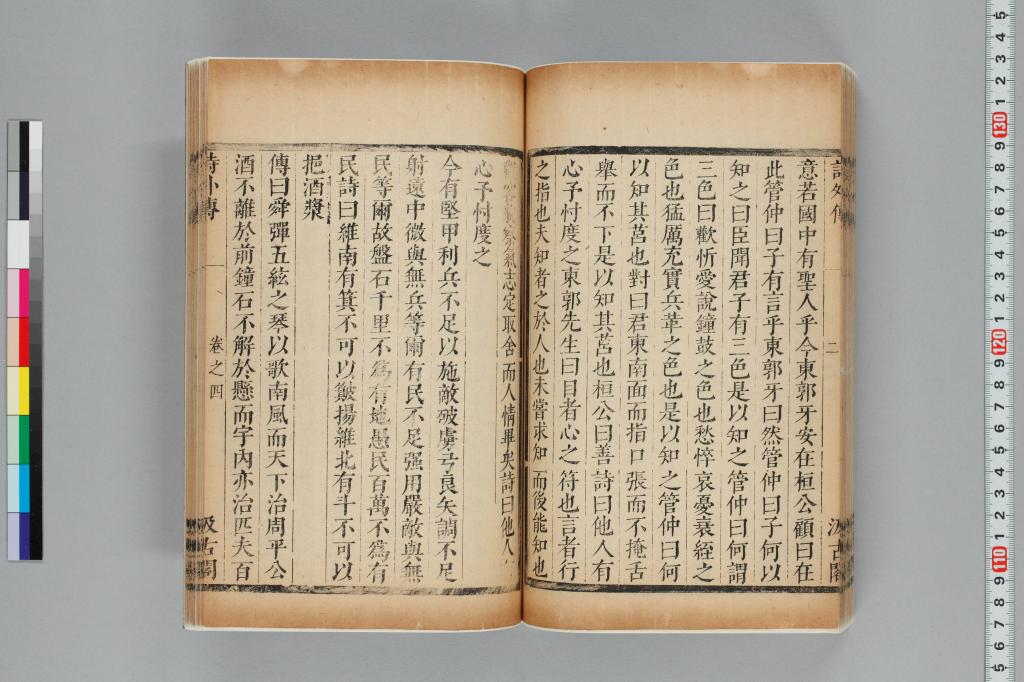 詩外傳
二
汲古閣
意若國中有聖人乎今東郭牙安在桓公顧曰在
此管仲曰子有言乎東郭牙曰然管仲曰子何以
知之曰臣聞君子有三色是以知之管仲曰何謂
三色曰歡忻愛說鐘鼓之色也愁悴哀憂衰絰之
色也猛厲充實兵革之色也是以知之管仲曰何
以知其莒也對曰君東南面而指口張而不掩舌
舉而不下是以知其莒也桓公曰善詩曰他人有
心予忖度之東郭先生曰目者心之符也言者行
之指也夫知者之於人也未嘗求知而後能知也
氣志定取舍而人情畢矣詩曰他人
心予忖度之
今有堅甲利兵不足以施敵破虜弓良矢調不足
射遠中微與無兵等爾有民不足强用嚴敵與無
民等爾故盤石千里不為有地愚民百萬不為有
民詩曰維南有箕不可以簸揚維北有斗不可以
挹酒漿
傳曰舜彈五絃之琴以歌南風而天下治周平公
酒不離於前鐘石不解於懸而宇內亦治匹夫百
詩外傳
卷之四
汲古閣
130
120
110